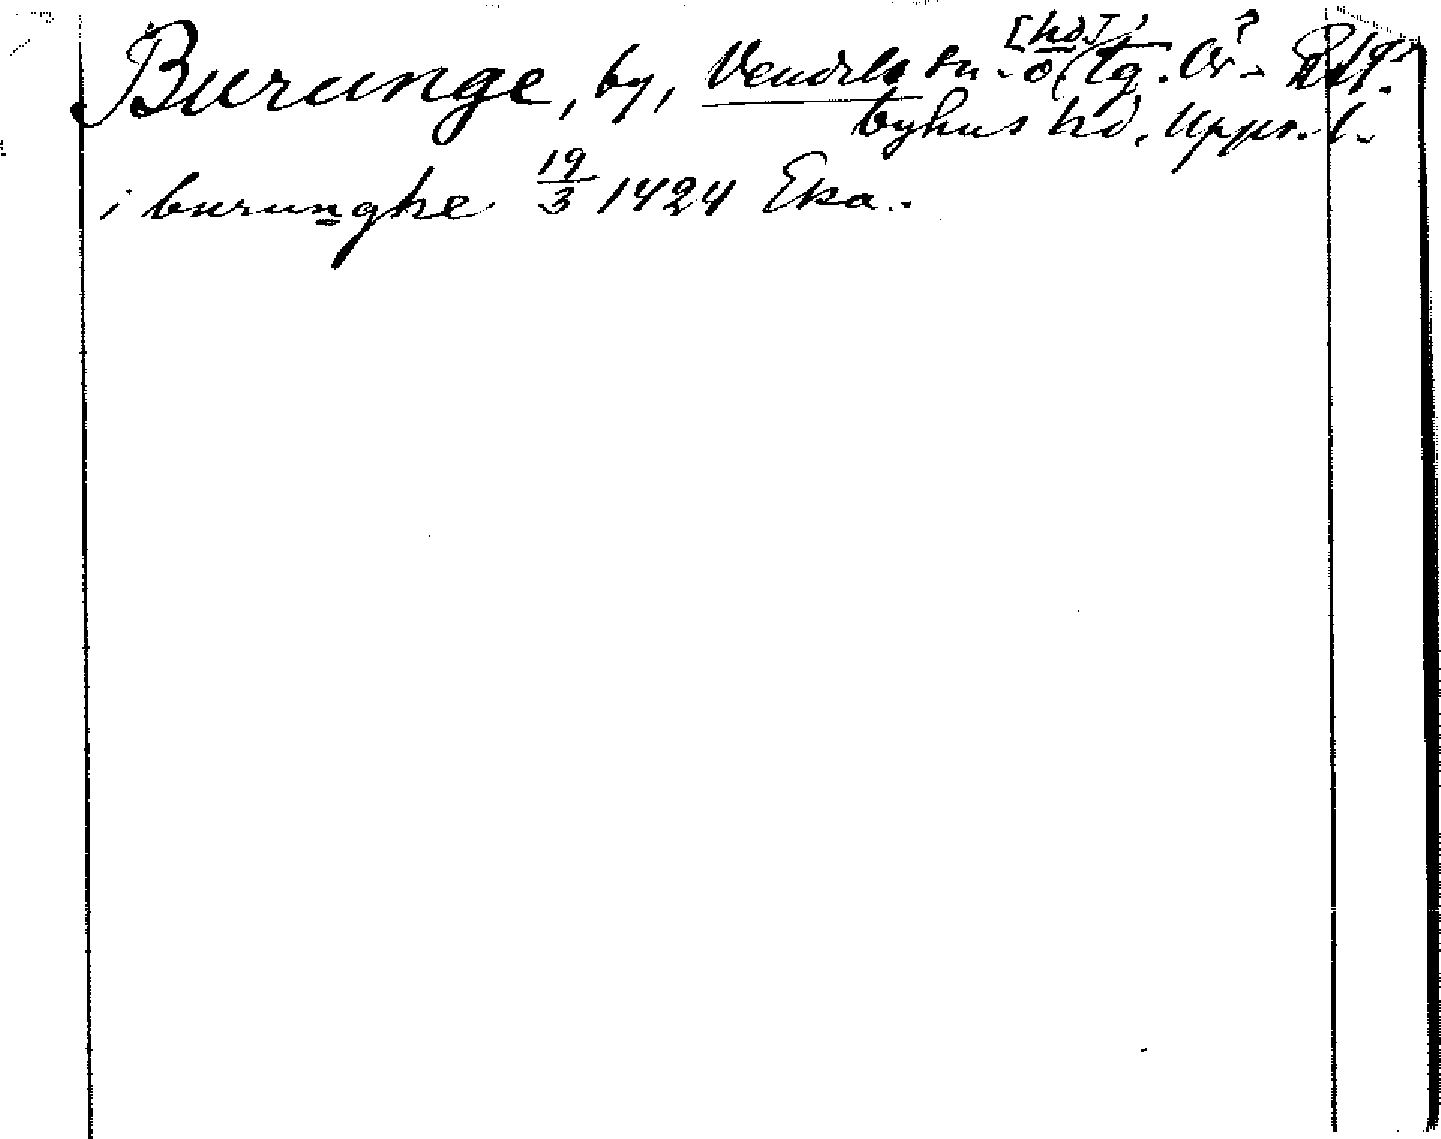 Burunge, by, Vendels sn. [hd] Ör
byhus hd. Upps. l.
i burunghe 19/3 1424 Eka.